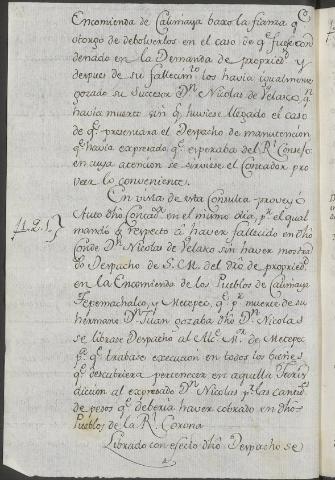 Encomienda de Calimaya baxo la fianza q.e
otorgo de debolverlos en el caso de q.e fuese con
denado en la Demanda de propried.d y
despues de su fallecim.to los havia igualmente
gozado su Succesor D.n Nicolas de Velasco, q.n
havia muerto sin q.e huviese llegado el caso
de q.e presentara el Despacho de manutencion
q.e havia expresado q.e esperaba del R.l Consejo
en cuya atencion se sirviese el Contador pro
veer lo conveniente.
En vista de esta Consulta proveyó
421 Auto dho Contad.r en el mismo dia, p.r el qual
mandó q.e respecto á haver fallecido en dho
Conde D.n Nicolas de Velasco sin haver mostra
do Despacho de S.M. del dro de propried.d
en la Encomienda de los Pueblos de Calimaya
Tepemachalco, y Metepec q.e p.r muerte de su
hermano D.n Juan gozaba dho D.n Nicolas
se librase Despacho al Alc.e M.r de Metepec
p.a q.e trabase execucion en todos los bienes
q.e descubriera pertenecer en aquella Juris
diccion al expresado D.n Nicolas p.r las cantid.s
de pesos q.e deberia haver cobrado en dhos
Pueblos de la R.l Corona
Librado con efecto dho Despacho se